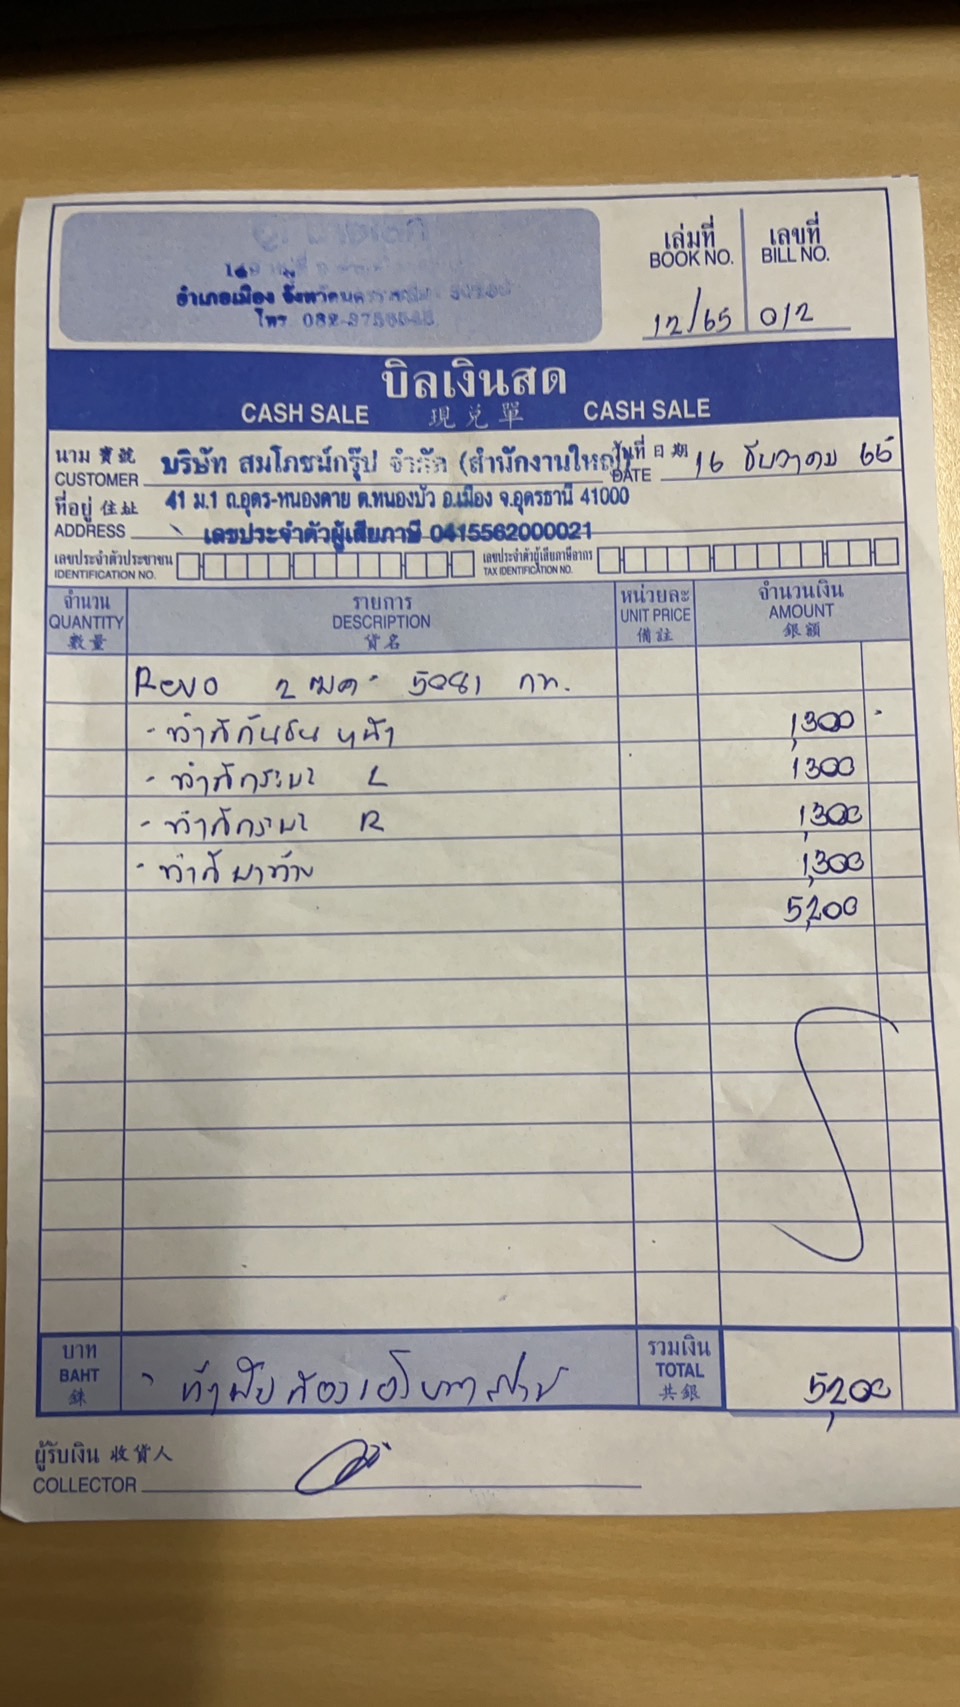 อำเภอเมือง
โทร 082-
เล่มที่ เลขที่
BOOK NO. BILL NO.
12/65 012
บิลเงินสด
CASH SALE 現兑單 CASH SALE
นาม 寶號 วันที่ 日期
CUSTOMER บริษัท สมโภชน์กรุ๊ป จำกัด (สำนักงานใหญ่) DATE 16 ธันวาคม 65
ที่อยู่ 住址 41 ม.1 ถ.อุดร-หนองคาย ต.หนองบัว อ.เมือง จ.อุดรธานี 41000
ADDRESS เลขประจำตัวผู้เสียภาษี 0415562000021
เลขประจำตัวประชาชน เลขประจำตัวผู้เสียภาษีอากร
IDENTIFICATION NO. TAX IDENTIFICATION NO.
จำนวน รายการ หน่วยละ จำนวนเงิน
QUANTITY DESCRIPTION UNIT PRICE AMOUNT
數量 貨名 備註 銀額
Revo 2 ฒค - 5081 กท.
- ทำสีกันชนหน้า 1,300 -
- ทำสีกระบะ L 1,300
- ทำสีกระบะ R 1,300
- ทำสีฝาท้าย 1,300
5,200
บาท รวมเงิน
BAHT ห้าพันสองร้อยบาทถ้วน TOTAL 5,200
銖 共銀
ผู้รับเงิน 收貨人
COLLECTOR